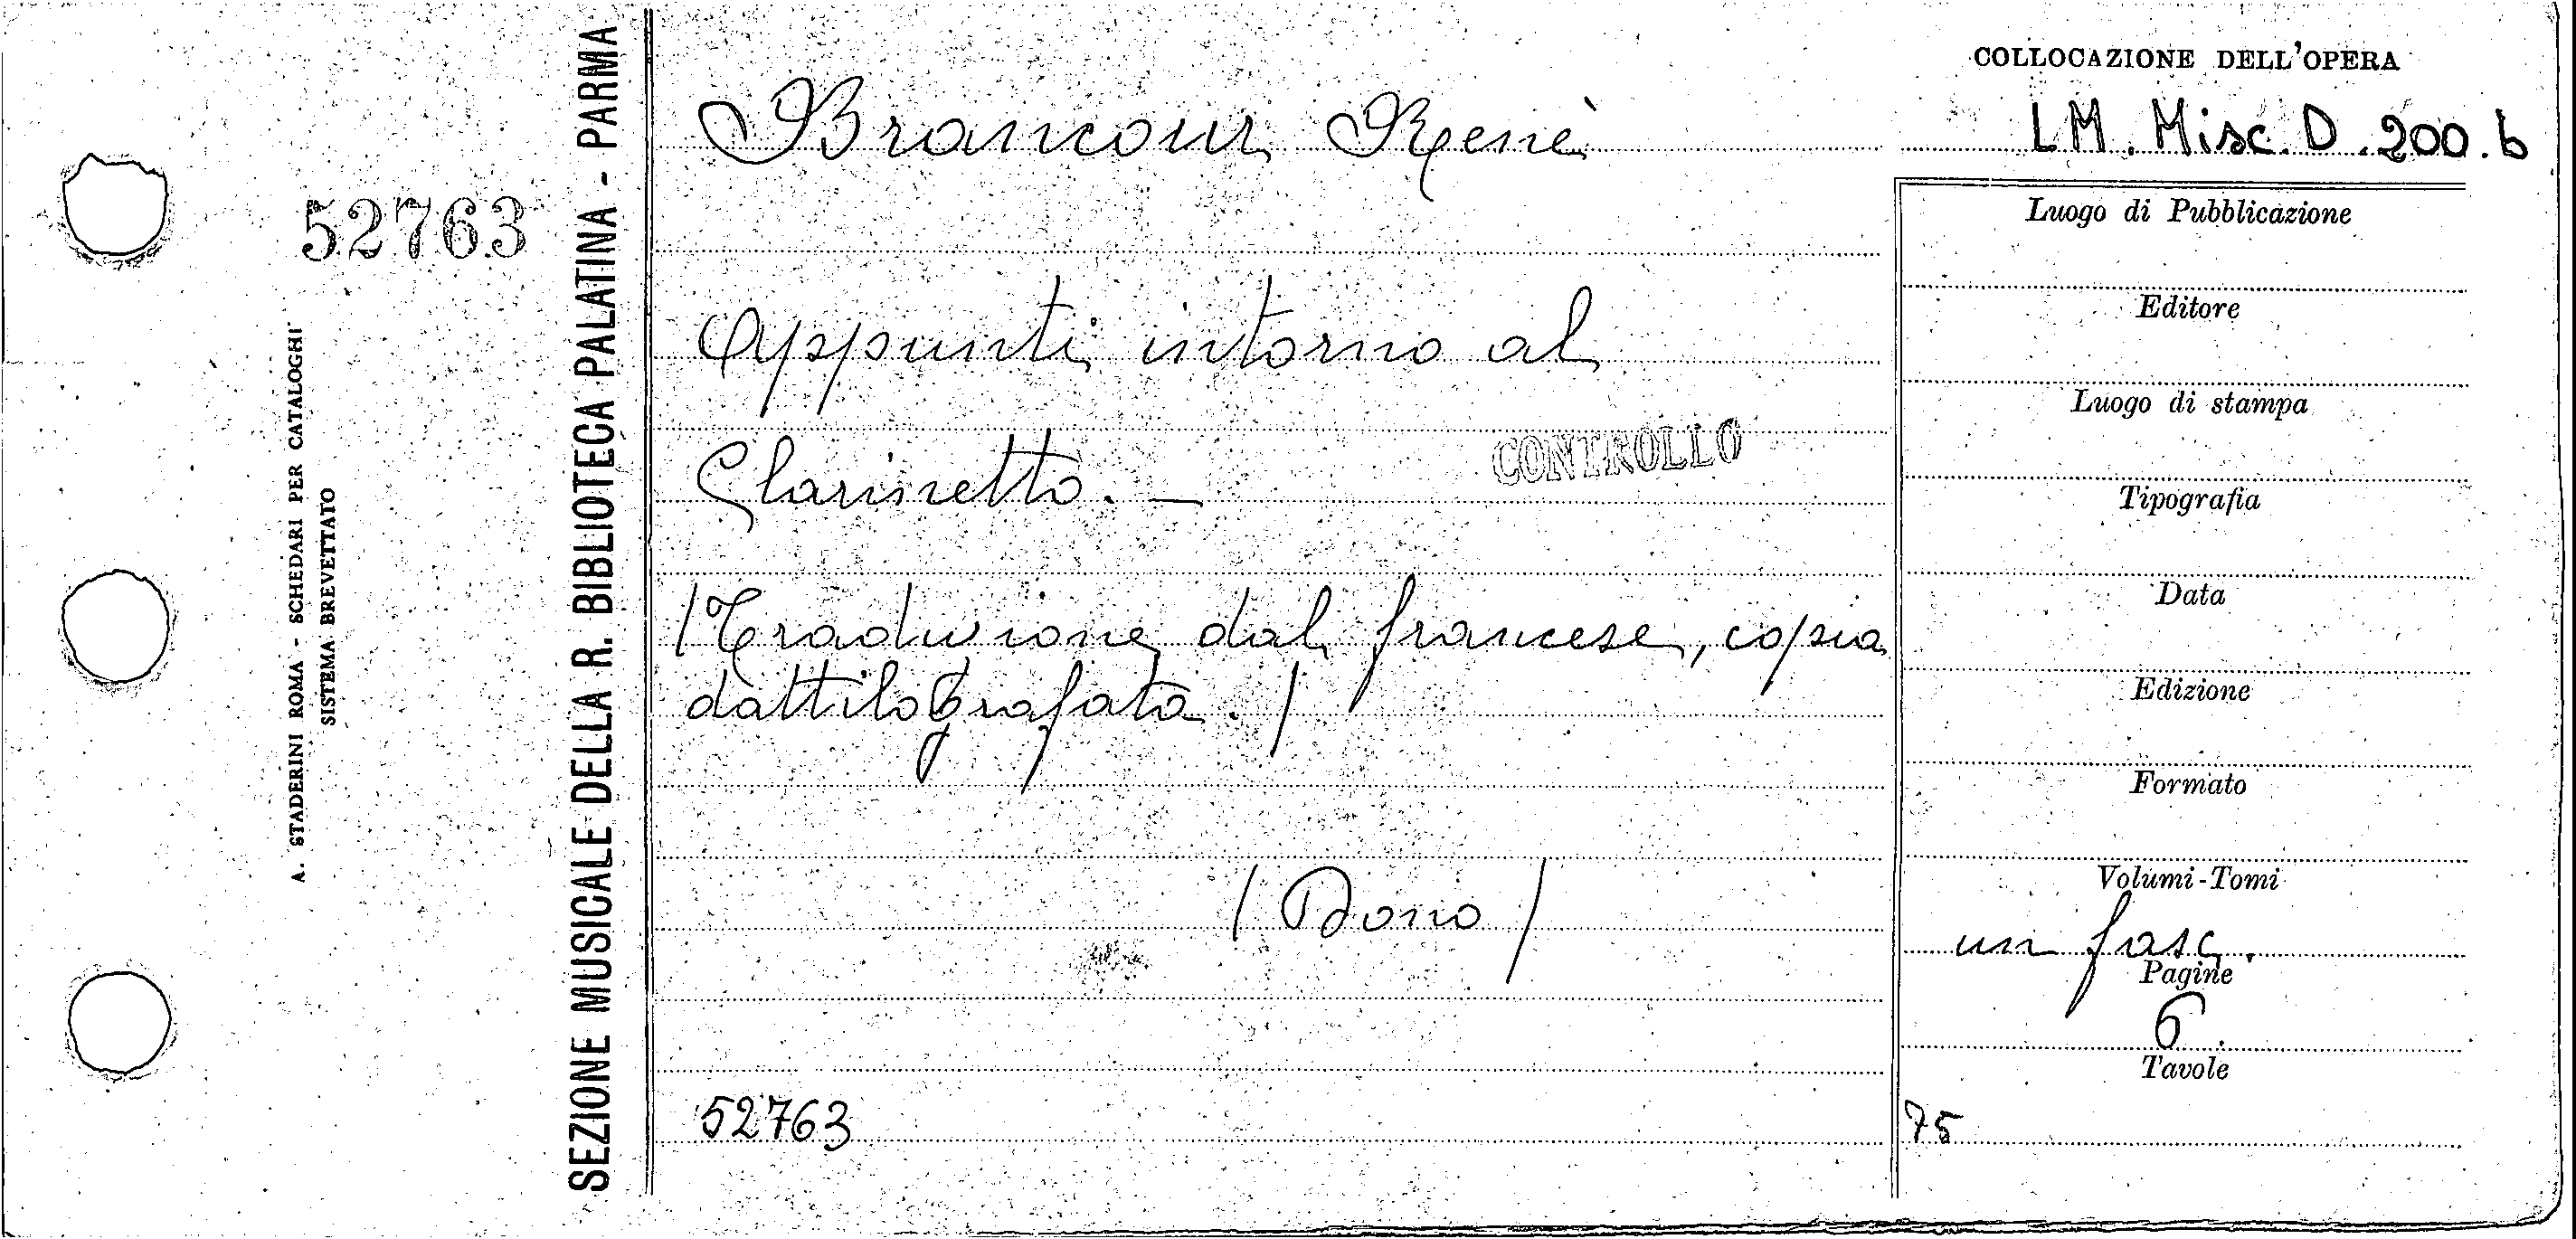 COLLOCAZIONE DELL'OPERA
Brancour Renè
LM. Misc. D. 200. b
52763
A. STADERINI ROMA - SCHEDARI PER CATALOGHI
SISTEMA BREVETTATO
SEZIONE MUSICALE DELLA R. BIBLIOTECA PALATINA - PARMA
Appunti intorno al
Clarinetto. —
CONTROLLO
/Traduzione dal francese, copia
dattilografata. /
/ Dono /
52763
Luogo di Pubblicazione
Editore
Luogo di stampa
Tipografia
Data
Edizione
Formato
Volumi - Tomi
un fasc.
Pagine
6.
Tavole
75